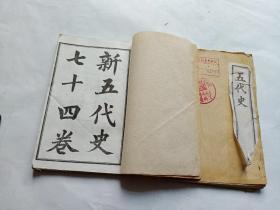 新五代史
七十四卷
五代史